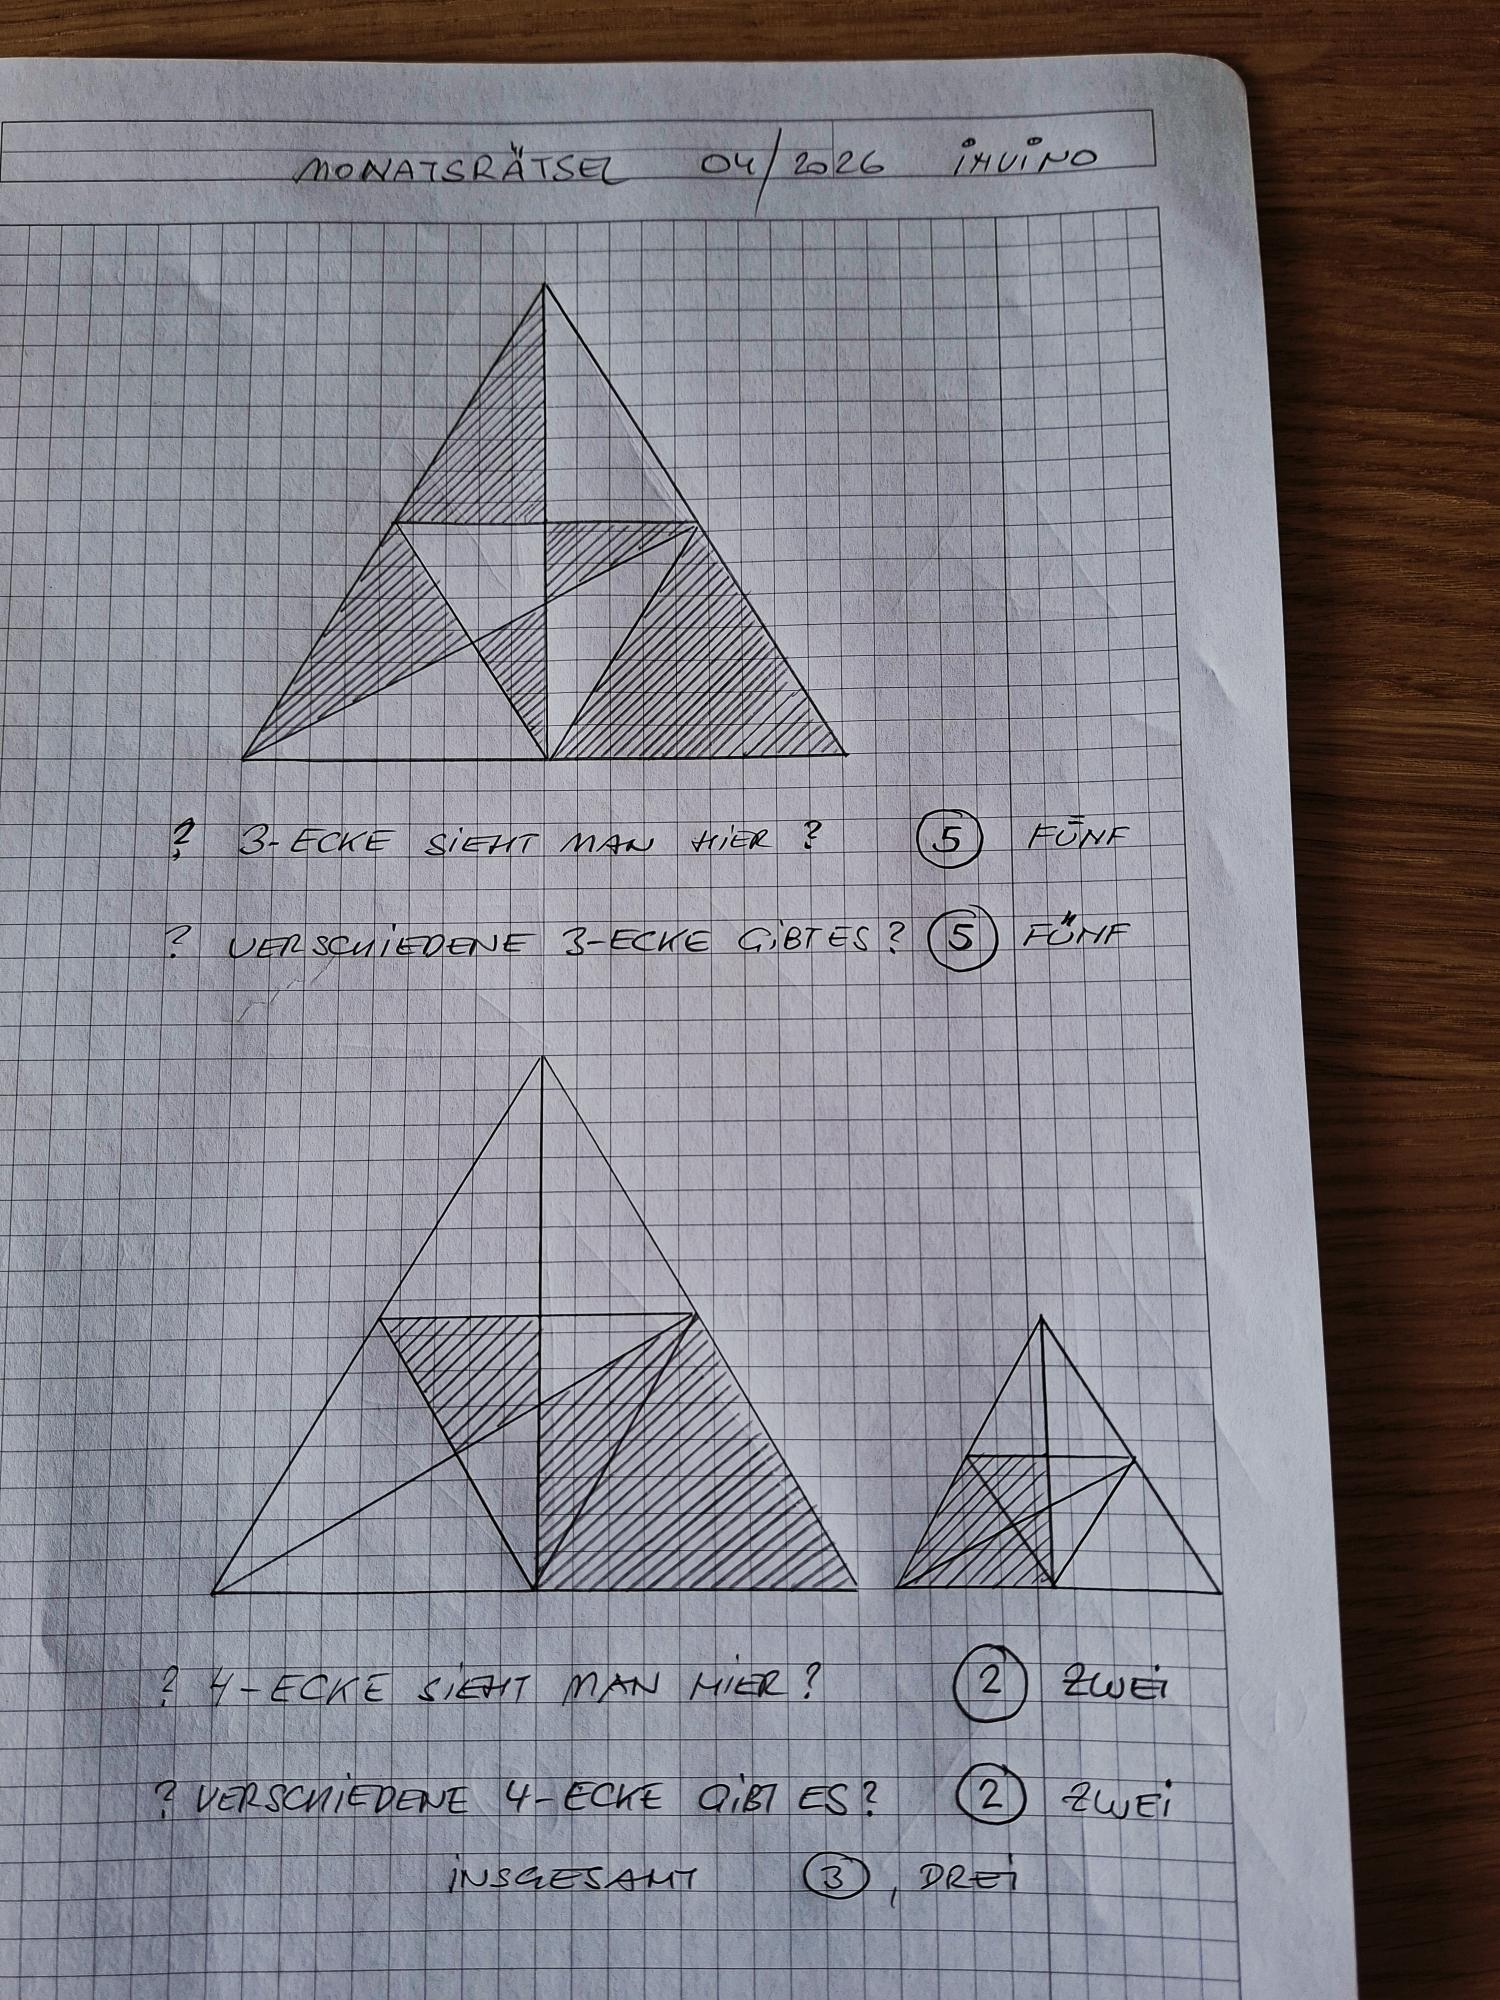 MONATSRÄTSEL 04/2026 iMViNO
? 3-ECKE SiEHT MAN HiER ? 5 FÜNF
? VERSCHiEDENE 3-ECKE GiBT ES ? 5 FÜNF
? 4-ECKE SiEHT MAN HiER ? 2 ZWEi
? VERSCHiEDENE 4-ECKE GiBT ES ? 2 ZWEi
iNSGESAMT 3, DREi